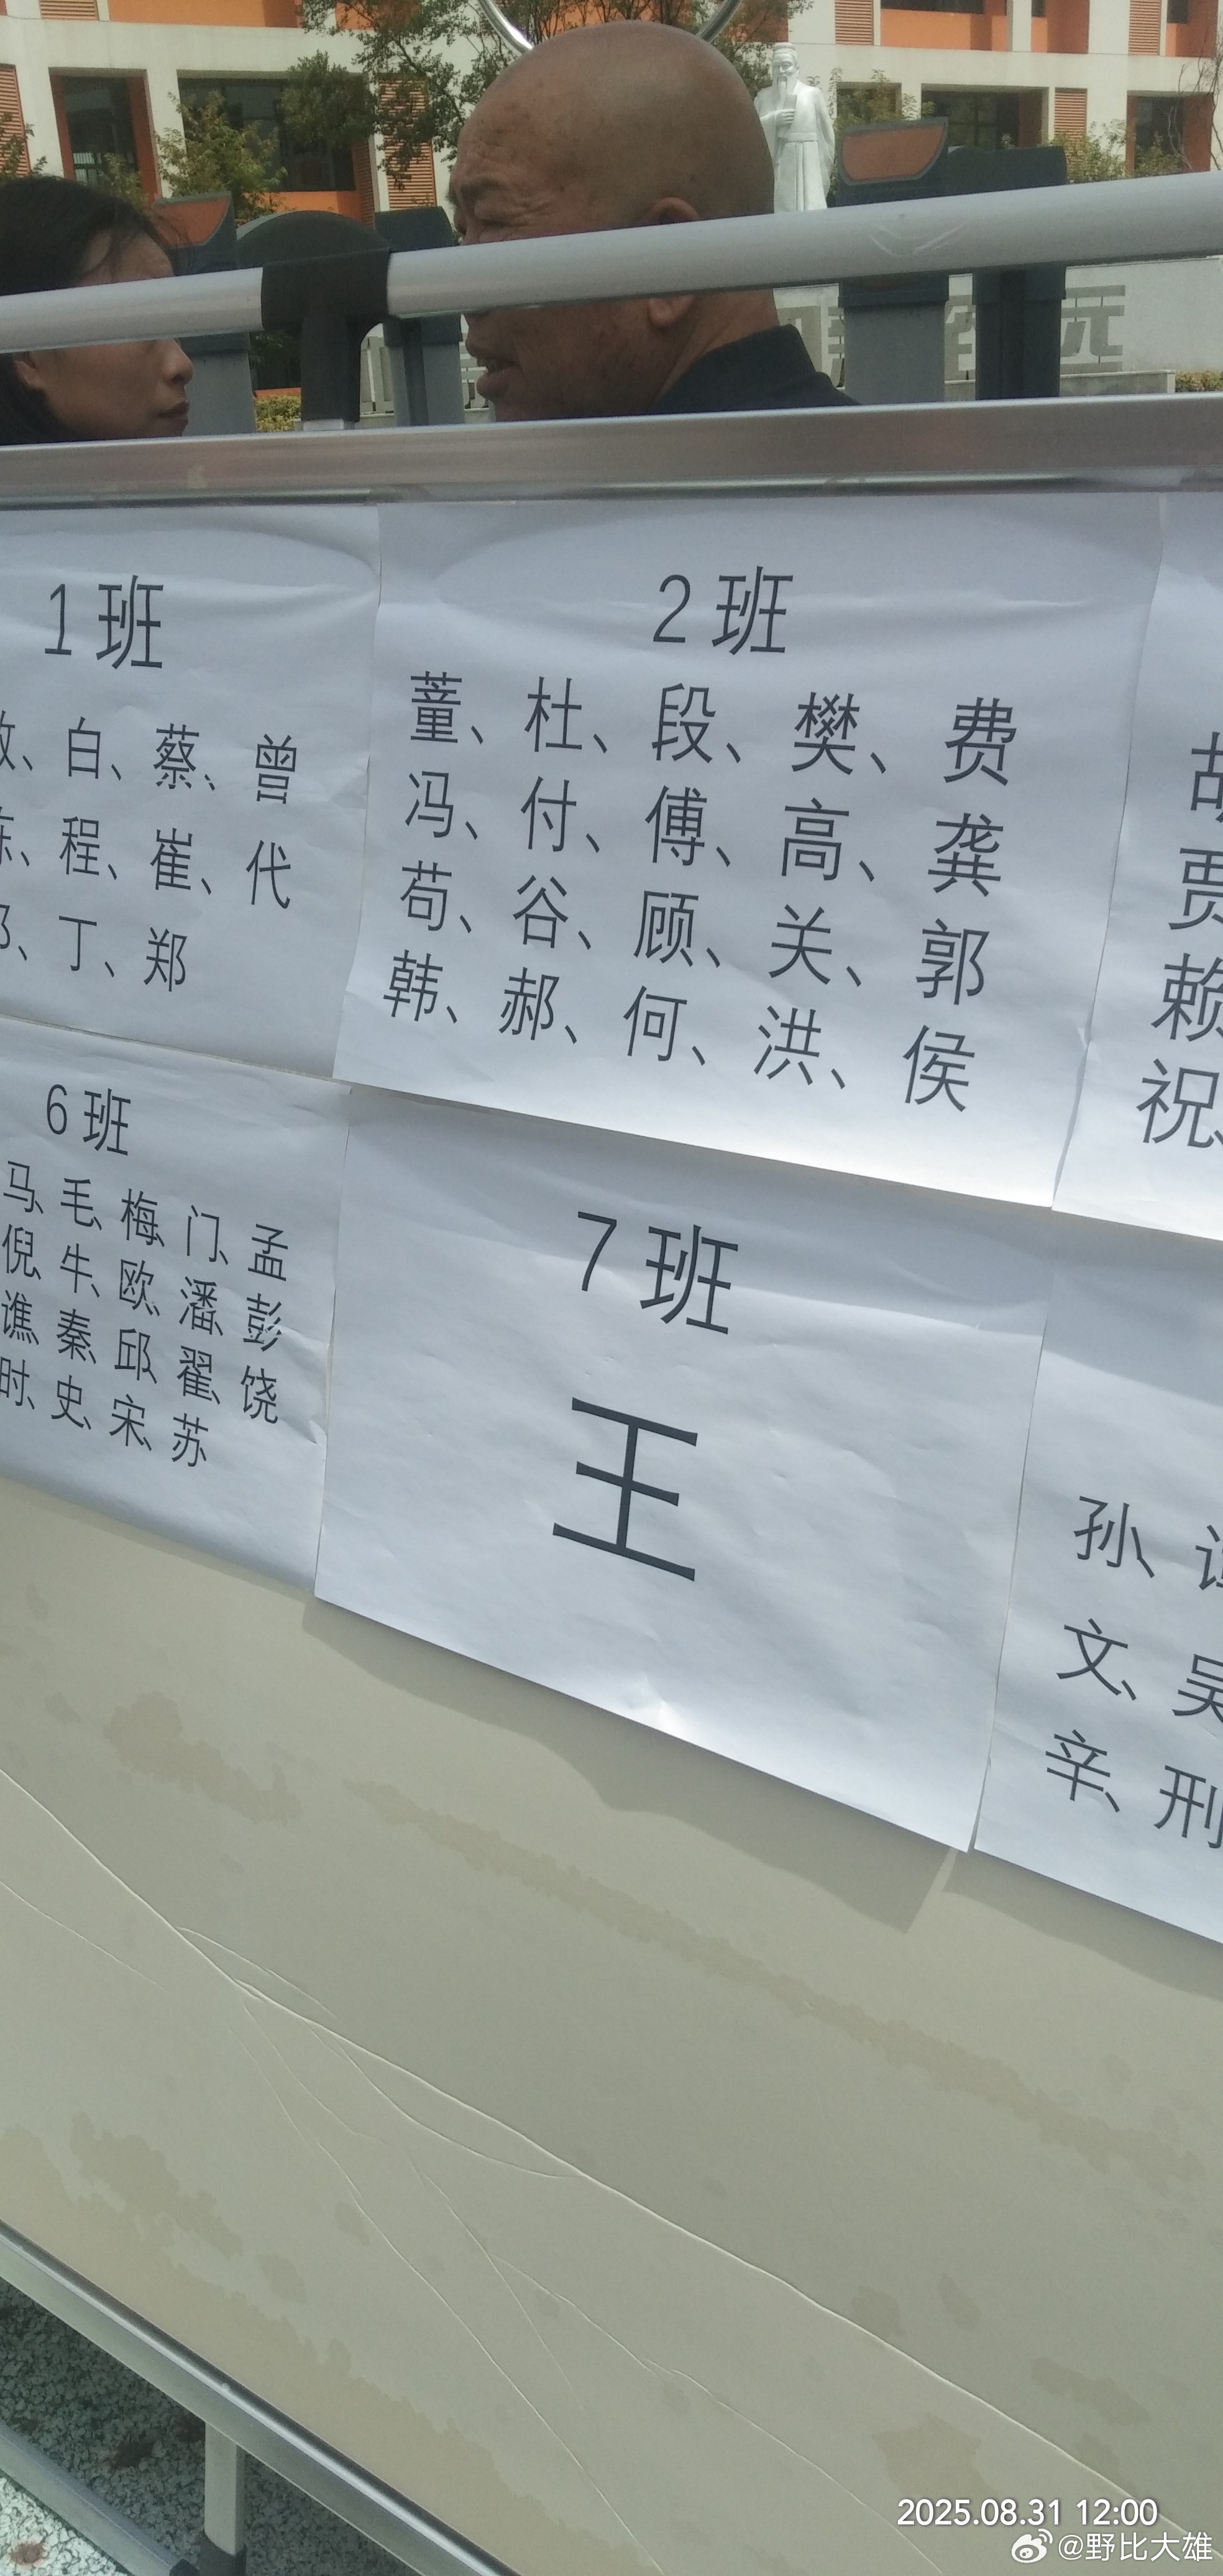 1班
、白、蔡、曾
、程、崔、代
、丁、郑
2班
董、杜、段、樊、费
冯、付、傅、高、龚
苟、谷、顾、关、郭
韩、郝、何、洪、侯
贾
赖
祝、
6班
马、毛、梅、门、孟
倪、牛、欧、潘、彭
谯、秦、邱、翟、饶
时、史、宋、苏
7班
王
孙、
文、吴
辛、刑
2025.08.31 12:00
@野比大雄